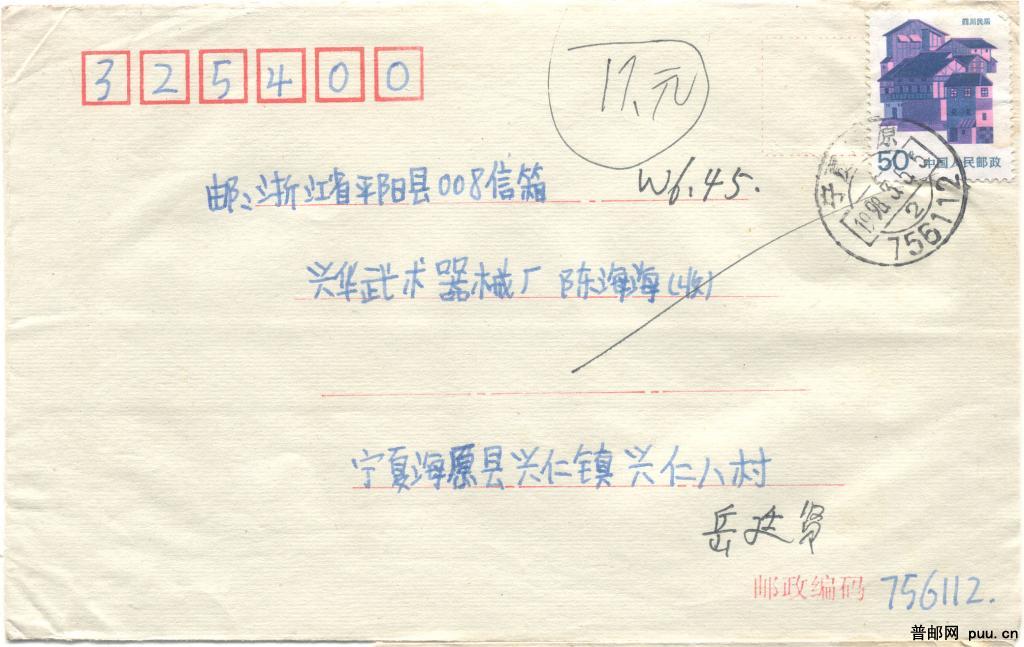 325400
17.元
四川民居
50分 中国人民邮政
邮:浙江省平阳县008信箱
W6.45.
1998.3.5
2
756112
兴华武术器械厂 陈海海(收)
宁夏海原县兴仁镇兴仁八村
岳廷贤
邮政编码 756112.
普邮网 puu.cn